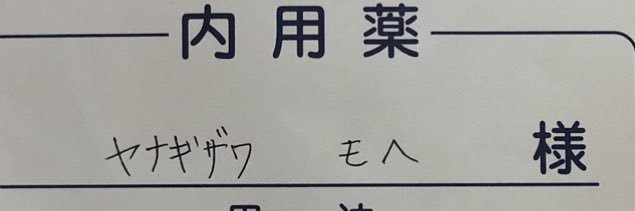 内用薬
ヤナギザワ モヘ 様